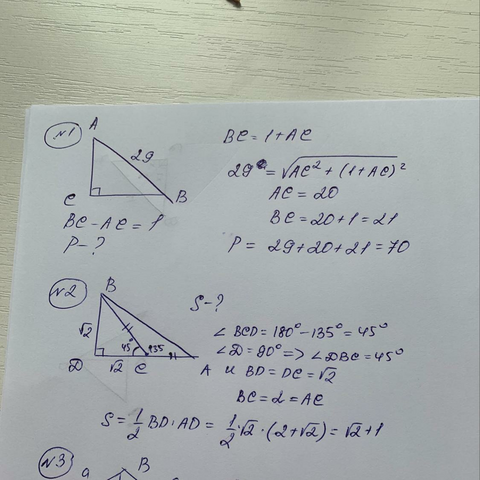 №1
A
29
C
B
BC - AC = 1
P - ?
BC = 1 + AC
29 = √AC² + (1+AC)²
AC = 20
BC = 20+1 = 21
P = 29+20+21 = 70
№2
B
√2
45°
135°
D
√2
C
A
S - ?
∠BCD = 180° - 135° = 45°
∠D = 90° => ∠DBC = 45°
и BD = DC = √2
BC = 2 = AC
S = 1/2 BD · AD = 1/2 √2 · (2+√2) = √2 + 1
№3
a
B